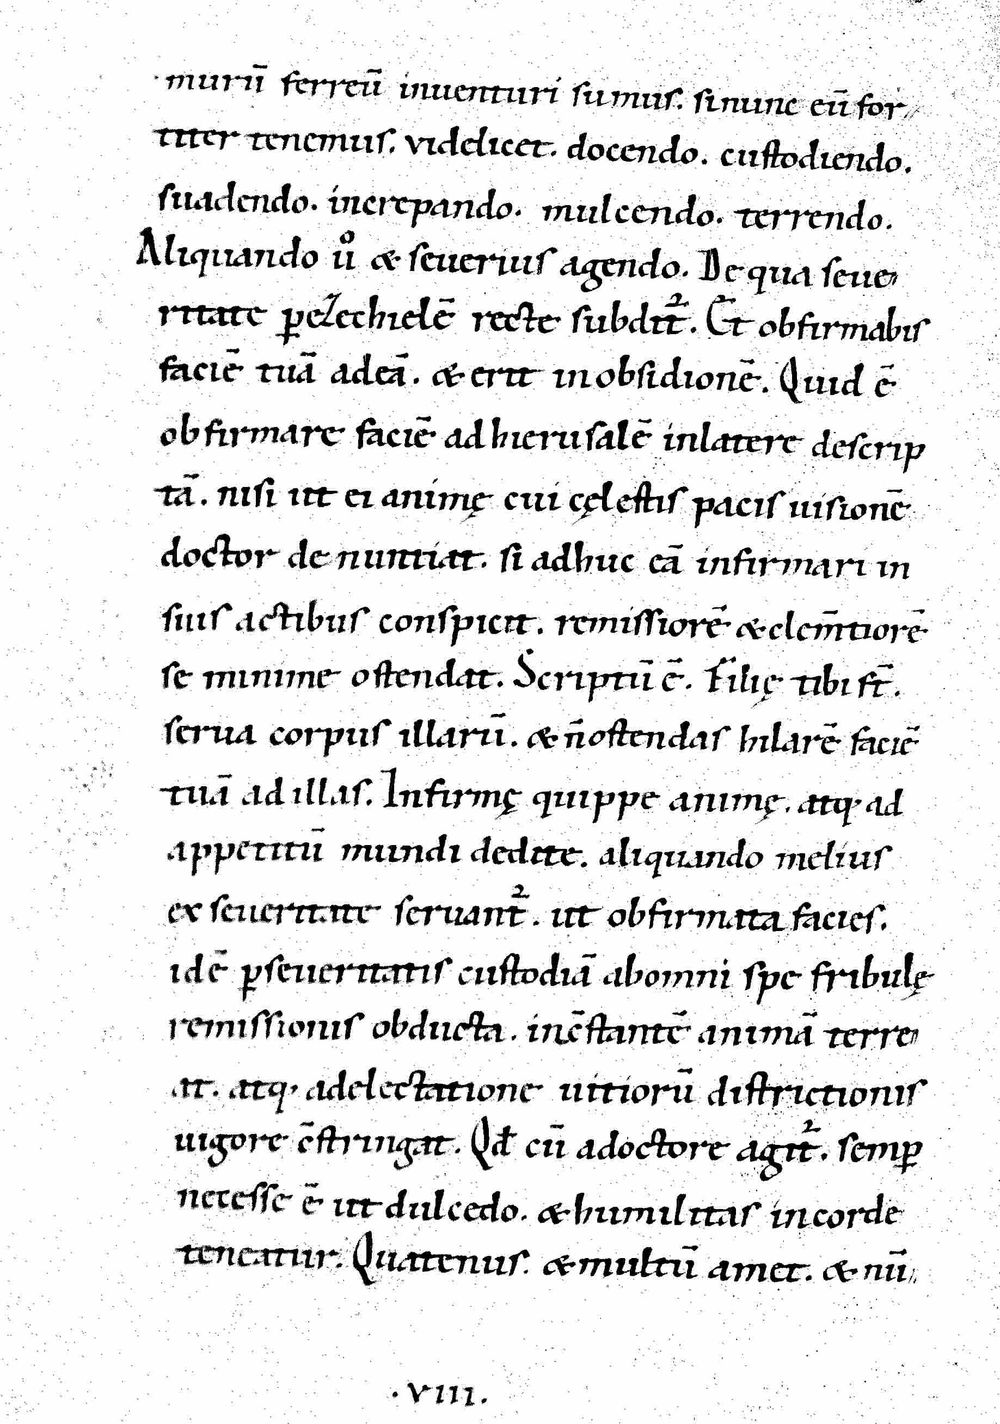 murū ferreū inuenturi sumus. sinunc eū for
titer tenemus. videlicet. docendo. custodiendo.
suadendo. increpando. mulcendo. terrendo.
Aliquando ůͦ & seuerius agendo. De qua seue
ritate ꝑeZechielē recte subdit᷑. Et obfirmabis
faciē tuā adeā. & erit inobsidionē. Quid ē
obfirmare faciē adhierusalē inlatere descrip
tā. nisi ut ei animę cui cęlestis pacis uisionē
doctor denuntiat. si adhuc eā infirmari in
suis actibus conspicit. remissiorē & clem̄tiorē
se minime ostendat. Scriptū ē. Filię tibi sт̄.
serua corpus illarū. & n̄ostendas hilarē faciē
tuā ad illas. Infirmę quippe animę. atq· ad
appetitū mundi dedite. aliquando melius
ex seueritate seruant᷑. ut obfirmata facies.
idē ꝑseueritatis custodiā abomni spe fribulę
remissionis obducta. inc̄stantē animā terre
at. atq· adelectatione uitiorū districtionis
uigore c̄stringat. Qđ cū adoctore agit᷑. semꝑ
necesse ē ut dulcedo. & humilitas incorde
teneatur. Quatenus. & multū amet. & nū
·VIII.